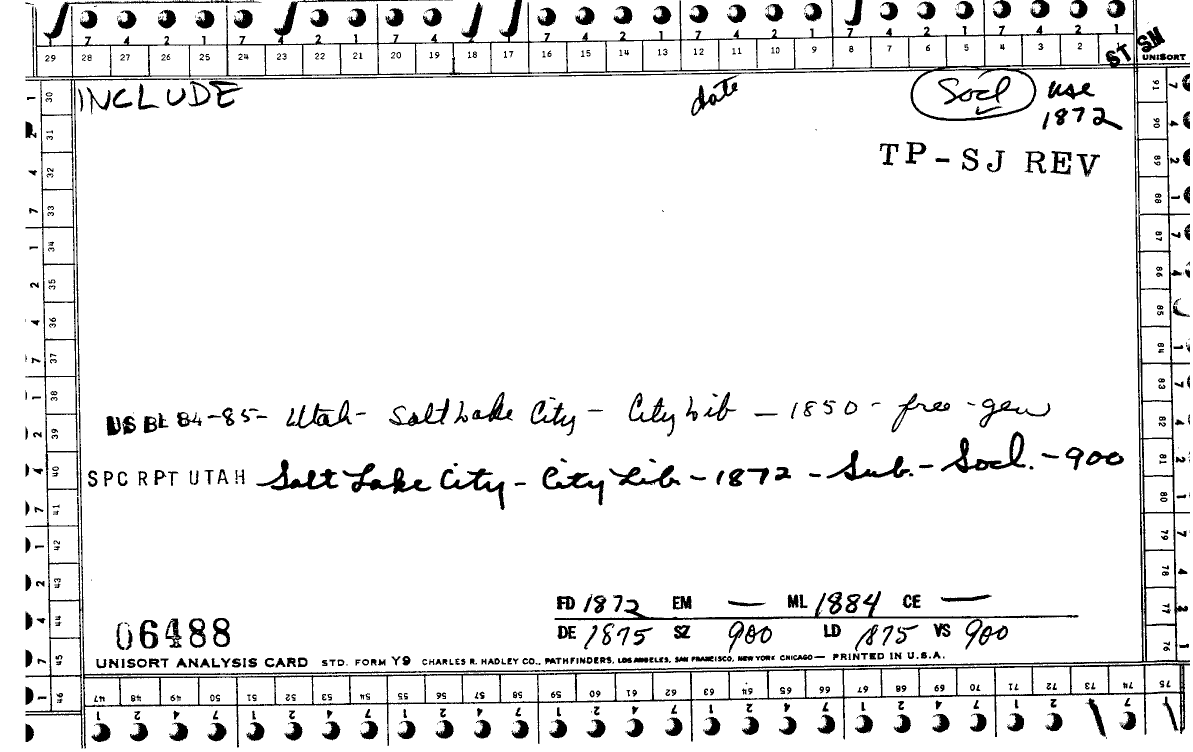 7 4 2 1 7 4 2 1 7 4 2 1 7 4 2 1 7 4 2 1 7 4 2 1
29 28 27 26 25 24 23 22 21 20 19 18 17 16 15 14 13 12 11 10 9 8 7 6 5 4 3 2 ST SN
UNISORT
INCLUDE date Socl use
1872
TP-SJ REV
US BE 84-85- Utah- Salt Lake City - City Lib - 1850 - free - gen
SPC RPT UTAH Salt Lake City - City Lib - 1872 - Sub. - Socl. - 900
FD 1872 EM — ML 1884 CE —
06488 DE 1875 SZ 900 LD 1875 VS 900
UNISORT ANALYSIS CARD STD. FORM Y9 CHARLES R. HADLEY CO., PATHFINDERS, LOS ANGELES, SAN FRANCISCO, NEW YORK CHICAGO — PRINTED IN U.S.A.
30 31 32 33 34 35 36 37 38 39 40 41 42 43 44 45 46
47 48 49 50 51 52 53 54 55 56 57 58 59 60 61 62 63 64 65 66 67 68 69 70 71 72 73 74 75
76 77 78 79 80 81 82 83 84 85 86 87 88 89 90 91